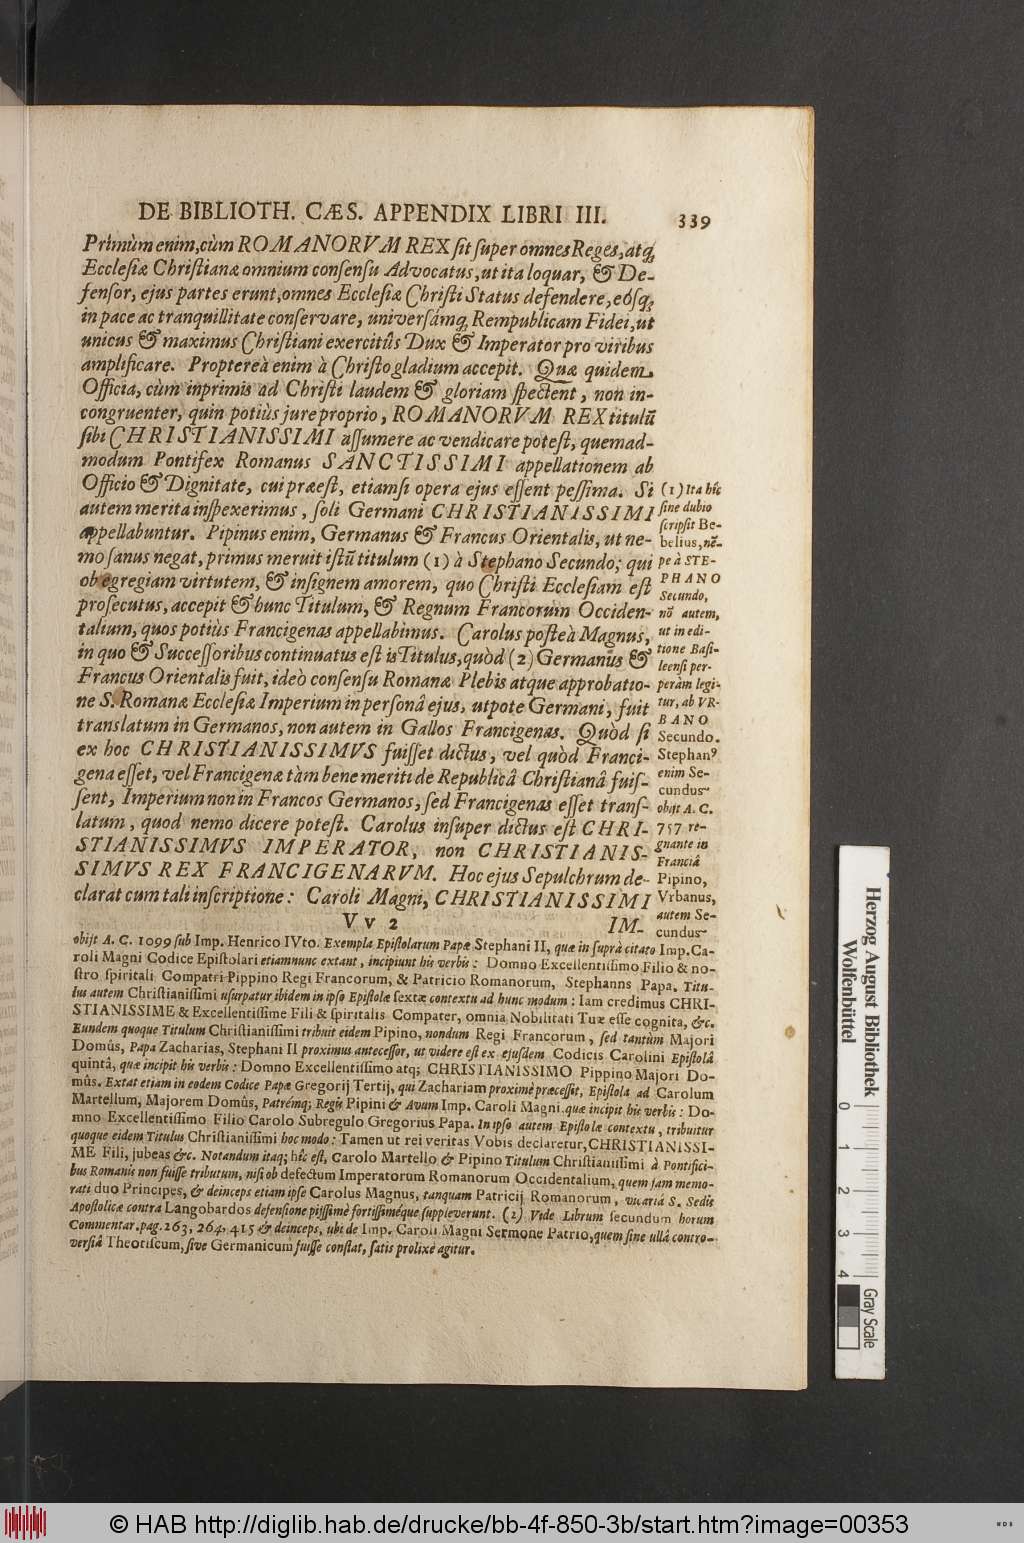 DE BIBLIOTH. CÆS. APPENDIX LIBRI III. 339
Primùm enim, cùm ROMANORVM REX sit super omnes Reges, atq;
Ecclesiæ Christianæ omnium consensu Advocatus, ut ita loquar, & De-
fensor, ejus partes erunt, omnes Ecclesiæ Christi Status defendere, eósq;
in pace ac tranquillitate conservare, universámq; Rempublicam Fidei, ut
unicus & maximus Christiani exercitûs Dux & Imperator pro viribus
amplificare. Proptereà enim à Christo gladium accepit. Quæ quidem
Officia, cùm inprimis ad Christi laudem & gloriam spectent, non in-
congruenter, quin potiùs jure proprio, ROMANORVM REX titulũ
sibi CHRISTIANISSIMI assumere ac vendicare potest, quemad-
modum Pontifex Romanus SANCTISSIMI appellationem ab
Officio & Dignitate, cui præest, etiamsi opera ejus essent pessima. Si
autem merita inspexerimus, soli Germani CHRISTIANISSIMI
appellabuntur. Pipinus enim, Germanus & Francus Orientalis, ut ne-
mo sanus negat, primus meruit istũ titulum (1) à Stephano Secundo; qui
ob egregiam virtutem, & insignem amorem, quo Christi Ecclesiam est
prosecutus, accepit & hunc Titulum, & Regnum Francorum Occiden-
talium, quos potiùs Francigenas appellabimus. Carolus posteà Magnus,
in quo & Successoribus continuatus est is Titulus, quòd (2) Germanus &
Francus Orientalis fuit, ideò consensu Romanæ Plebis atque approbatio-
ne S. Romanæ Ecclesiæ Imperium in personâ ejus, utpote Germani, fuit
translatum in Germanos, non autem in Gallos Francigenas. Quòd si
ex hoc CHRISTIANISSIMVS fuisset dictus, vel quòd Franci-
gena esset, vel Francigenæ tàm bene meriti de Republicâ Christianâ fuis-
sent, Imperium non in Francos Germanos, sed Francigenas esset trans-
latum, quod nemo dicere potest. Carolus insuper dictus est CHRI-
STIANISSIMVS IMPERATOR, non CHRISTIANIS-
SIMVS REX FRANCIGENARVM. Hoc ejus Sepulchrum de-
clarat cum tali inscriptione: Caroli Magni, CHRISTIANISSIMI
V v 2 IM-
(1) Ita hîc
sine dubio
scripsit Be-
belius, nẽ-
pe à STE-
PHANO
Secundo,
nõ autem,
ut in edi-
tione Basi-
leensi per-
peràm legi-
tur, ab VR-
BANO
Secundo.
Stephanꝰ
enim Se-
cundus
obijt A. C.
757 re-
gnante in
Franciâ
Pipino,
Vrbanus,
autem Se-
cundus
obijt A. C. 1099 sub Imp. Henrico IVto. Exempla Epistolarum Papæ Stephani II, quæ in suprà citato Imp. Ca-
roli Magni Codice Epistolari etiamnunc extant, incipiunt his verbis: Domno Excellentissimo Filio & no-
stro spiritali Compatri Pippino Regi Francorum, & Patricio Romanorum, Stephanns Papa. Titu-
lus autem Christianissimi usurpatur ibidem in ipso Epistolæ sextæ contextu ad hunc modum: Iam credimus CHRI-
STIANISSIME & Excellentissime Fili & spiritalis Compater, omnia Nobilitati Tuæ esse cognita, &c.
Eundem quoque Titulum Christianissimi tribuit eidem Pipino, nondum Regi Francorum, sed tantùm Majori
Domûs, Papa Zacharias, Stephani II proximus antecessor, ut videre est ex ejusdem Codicis Carolini Epistolâ
quintâ, quæ incipit his verbis: Domno Excellentissimo atq; CHRISTIANISSIMO Pippino Majori Do-
mûs. Extat etiam in eodem Codice Papæ Gregorij Tertij, qui Zachariam proximè præcessit, Epistola ad Carolum
Martellum, Majorem Domûs, Patrémq; Regis Pipini & Avum Imp. Caroli Magni. quæ incipit his verbis: Do-
mno Excellentissimo Filio Carolo Subregulo Gregorius Papa. In ipso autem Epistolæ contextu, tribuitur
quoque eidem Titulus Christianissimi hoc modo: Tamen ut rei veritas Vobis declaretur, CHRISTIANISSI-
ME Fili, jubeas &c. Notandum itaq; hîc est, Carolo Martello & Pipino Titulum Christianissimi à Pontifici-
bus Romanis non fuisse tributum, nisi ob defectum Imperatorum Romanorum Occidentalium, quem jam memo-
rati duo Principes, & deinceps etiam ipse Carolus Magnus, tanquam Patricij Romanorum, vicariâ S. Sedis
Apostolicæ contra Langobardos defensione pijssimè fortissiméque suppleverunt. (2) Vide Librum secundum horum
Commentar. pag. 263, 264, 415 & deinceps, ubi de Imp. Caroli Magni Sermone Patrio, quem sine ullâ contro-
versiâ Theotiscum, sive Germanicum fuisse constat, satis prolixè agitur.
Herzog August Bibliothek
Wolfenbüttel
0 1 2 3 4
Gray Scale
© HAB http://diglib.hab.de/drucke/bb-4f-850-3b/start.htm?image=00353
WDB